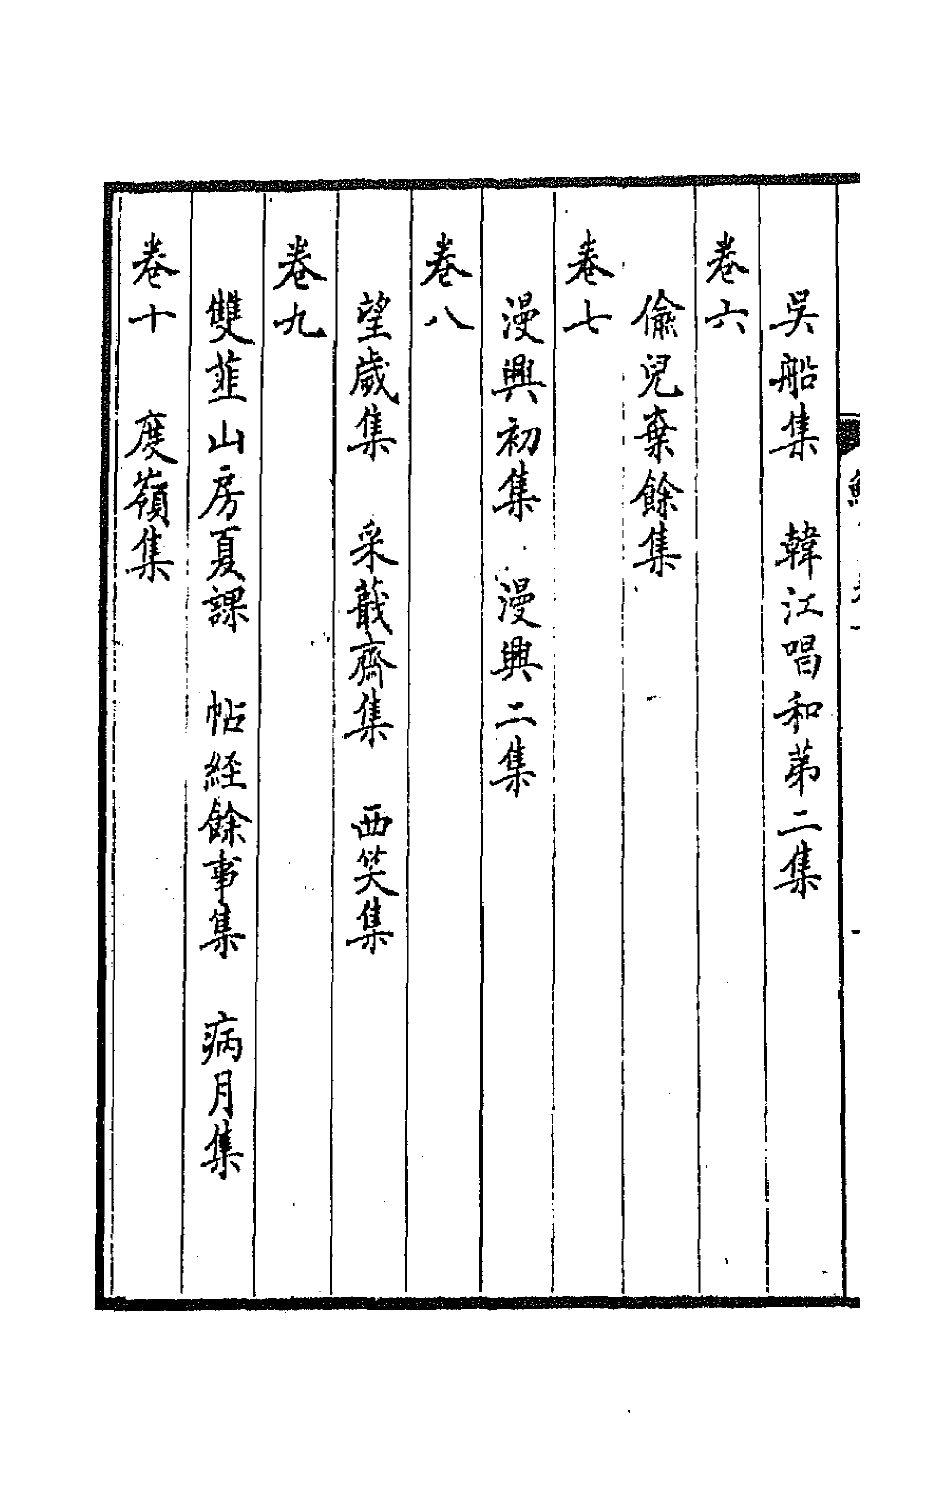 吳船集　韓江唱和第二集
卷六
偸兒棄餘集
卷七
漫興初集　漫興二集
卷八
望歲集　采蕺齋集　西笑集
卷九
雙韮山房夏課　帖經餘事集　病月集
卷十　度嶺集